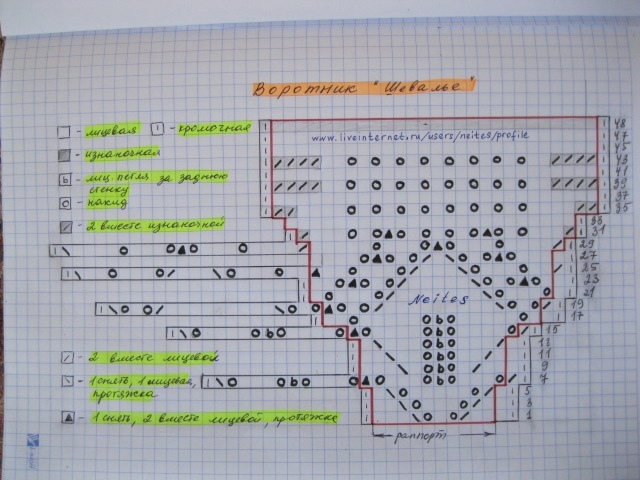 Воротник "Шевалье"
www.liveinternet.ru/users/neites/profile
- лицевая
- кромочная
- изнаночная
- лиц. петля за заднюю
стенку
- накид
- 2 вместе изнаночной
- 2 вместе лицевой
- 1 снять, 1 лицевая,
протяжка
- 1 снять, 2 вместе лицевой, протяжка
Neites
раппорт
48
47
45
43
41
39
37
35
33
31
29
27
25
23
21
19
17
15
13
11
9
7
5
3
1